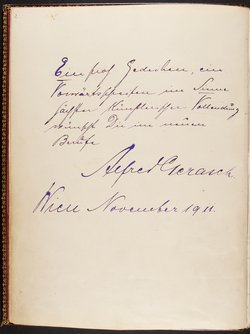 Ein froh Gedeihen, ein
Vorwärtsschreiten im Sinne
höchster künstlerischer Vollendung
wünscht Dir im neuen
Berufe
Alfred Gerasch.
Wien November 1911.